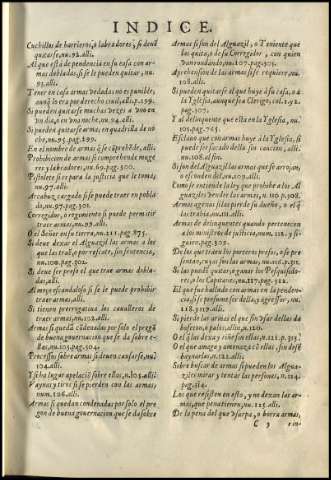 INDICE.
Cuchillos de harrieros, o labradores, si deuẽ
quitarse, nu.92.alli.
Al que està de pendencia en su casa con ar-
mas dobladas, si se le pueden quitar, nu.
93.alli.
Tener en casa armas vedadas no es punible,
aunq̃ lo era por derecho ciuil, alli.p.299.
Si pueden quitarse muchas vezes a vno en
vn dia, o en vna noche, nu.94.alli.
Si pueden quitarse armas, en quadrilla de no-
che, nu.95.pag.299.
En el nombre de armas q̃ se
Prohibicion de armas si comprehende muge-
res y labradores, nu.69.pag.300.
Pistolete si repara la justicia que le toma,
nu.97.alli.
Arcabuz cargado si se puede traer en pobla-
do, nu.97.pag.301.
Corregidor, o regimiento si puede permitir
traer armas, nu.98.alli.
O el Señor en su tierra, nu.11.pag.875.
Si deue dexar el Alguazil las armas a los
que las traẽ, por rescate, sin sentencia,
nu.100.alli.
Si deue ser preso el que trae armas dobla-
das, alli.
Al amo escandaloso si se le puede prohibir
traer armas, alli.
Si tienen prerrogatiua los caualleros de
traer armas, nu.102.alli.
Armas si quedã cõdenadas por solo el pregõ
de buena gouernacion que se da sobre e-
llos, nu.103.pag.304.
Processos sobre armas si deuen causarse, nu.
104.alli.
Y si ha lugar apelaciõ sobre ellos, n.105.alli.
Vaynas y tiros si se pierden con las armas,
num.126.alli.
Armas si quedan condenadas por solo el pre-
gon de buena gouernacion que se da sobre
Armas si son del Alguazil, o Teniente que
los quita, o de su Corregidor, con quien
van rondando, nu.107.pag.305.
Aprehension de las armas si se requiere, nu.
108.alli.
Si pueden quitarse el que huye a su casa, o a
la Yglesia, aunque sea Clerigo, col.2.92.
pag.307.
Y al delinquente que està en la Yglesia, nu.
105.pag.765.
Esclauo que con armas huye a la Yglesia, si
puede ser sacado della sin caucion, alli
nu.108.al fin.
Si son del Alguazil las armas que se arrojan,
o esconden del, nu.109.alli.
Como se entiende la ley que prohibe a los Al-
guaziles vender las armas, n.110.p.308.
Armas agenas si las pierde su dueño, o el q̃
las trahia, nu.111.alli.
Armas de delinquentes quando pertenecen
a los ministros de justicia, num.112. y si-
guiere.pag.309.
De los que traen los porteros presos, o se pre-
sentan, cuyas son las armas, nu.116.p.311.
Si las puedẽ quitar, o ganar los Pesquisido-
res, o los Capitanes, nu.117.pag.312.
El que fue hallado con armas en la penden-
cia, si se presume ser della, y agressor, nu.
118.319.alli.
Si pierde las armas el que sin vsar dellas da
bofeton, o palos, alli, n.120.
O el q̃ las dexa y riñe sin ellas, n.121.p.313.
O el que amaga y amenaça cõ ellas, sin dese-
baynarlas, n.122.alli.
Sobre buscar de armas si pueden los Alguaz-
ziles mirar y tentar las personas, n.124.
pag.314.
Los que resisten en esto, y no dexan las ar-
mas, que pena tienen, nu.125.alli.
De la pena del que vsurpa, o borra armas,